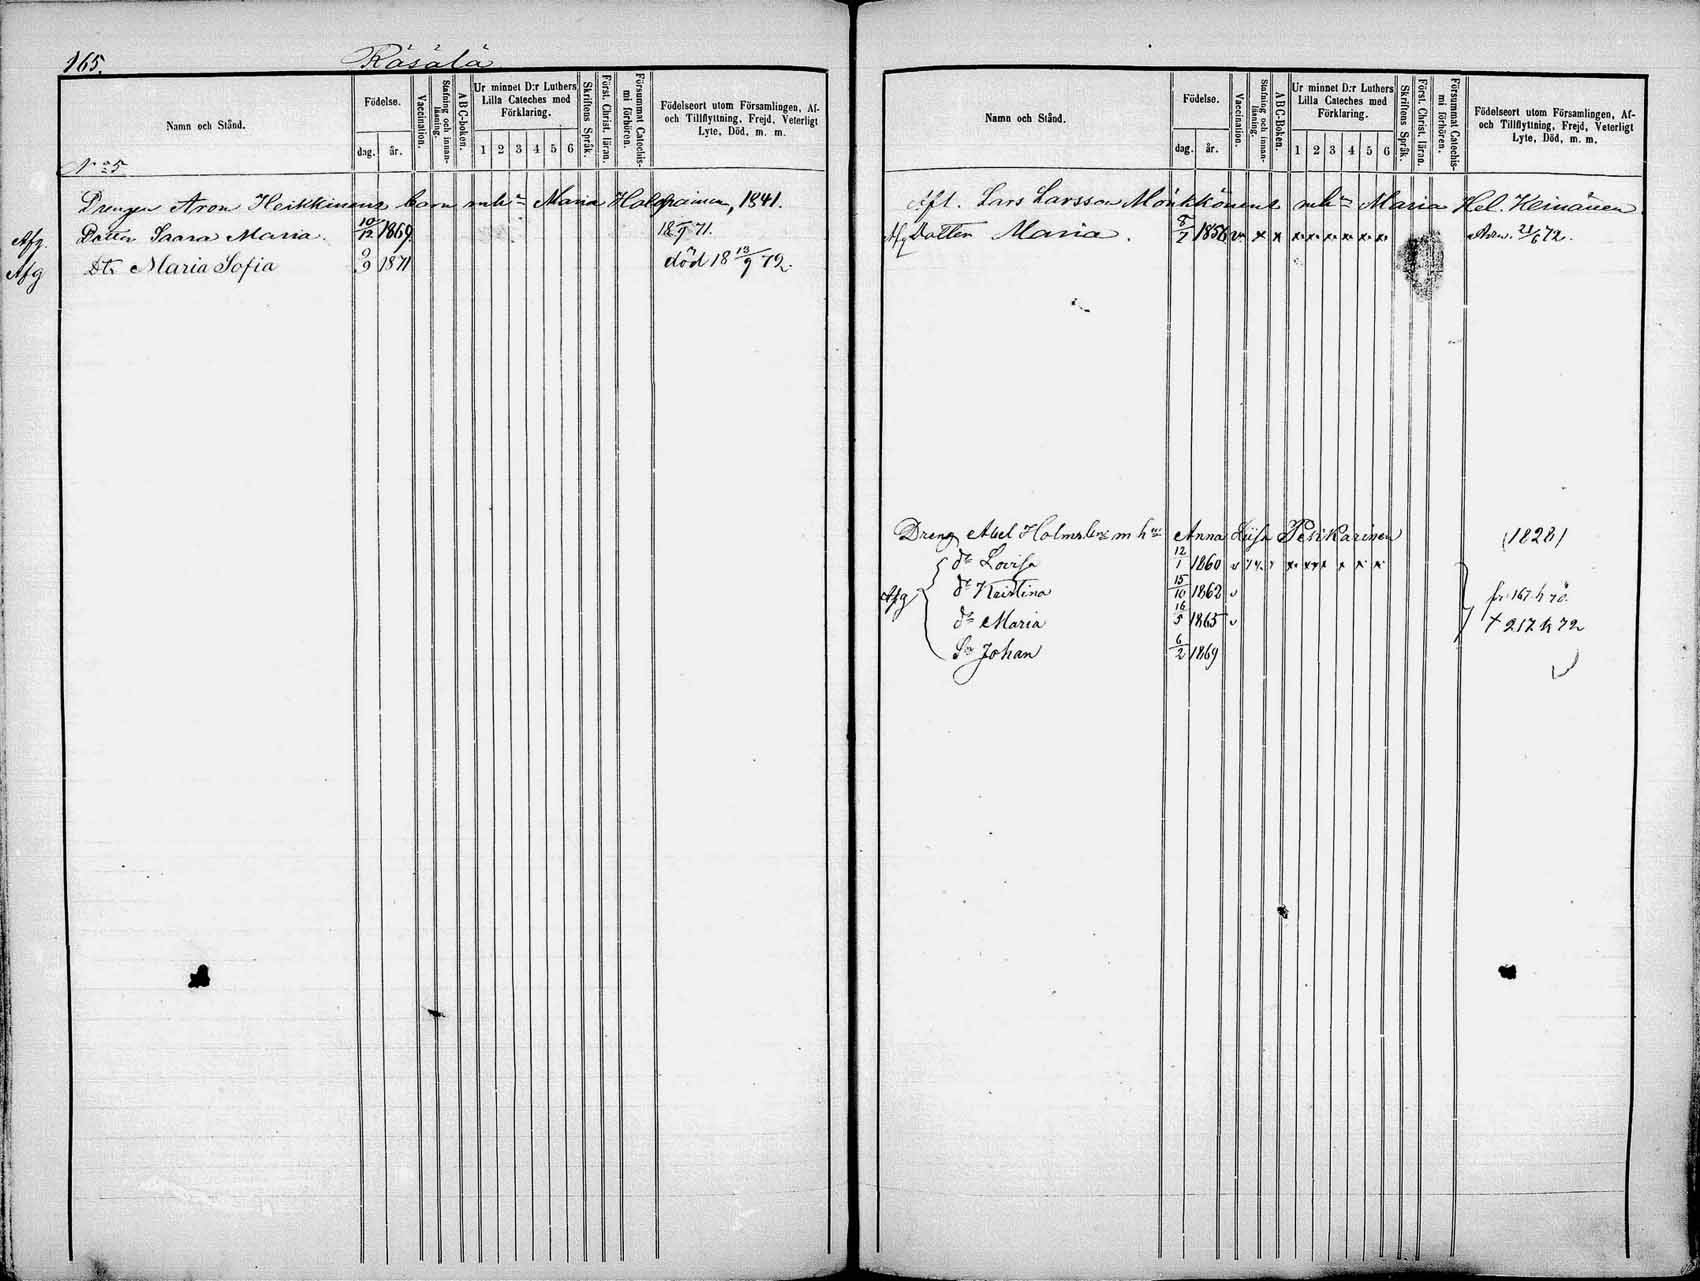 165. Räsälä
Namn och Stånd.
Födelse.
dag. år.
Vaccination.
Stafning och innanläsning.
ABC-boken.
Ur minnet D:r Luthers Lilla Cateches med Förklaring.
1 2 3 4 5 6
Skriftens Språk.
Först. Christ. läran.
Försummat Catechismi förhören.
Födelseort utom Församlingen, Af- och Tillflyttning, Frejd, Veterligt Lyte, Död, m. m.
No 5
Drengen Aron Heikkinens barn mhu Maria 1841.
Afg. Dotter Saara Maria. 10/12 1869.
Afg Dtr Maria Sofia 9/9 1871 död 18 13/9 72.
Namn och Stånd.
Födelse.
dag. år.
Vaccination.
Stafning och innanläsning.
ABC-Boken.
Ur minnet D:r Luthers Lilla Cateches med Förklaring.
1 2 3 4 5 6
Skriftens Språk.
Först. Christ. läran.
Försummat Catechismi förhören.
Födelseort utom Församlingen, Af- och Tillflyttning, Frejd, Veterligt Lyte, Död, m. m.
Lars Larsson Mönkkönens mhu Maria Hel. Keinänen.
Afg Dotter Maria. 1856 v x x x x x x x x 72.
Dreng Abel mhu Anna Lisa Pesikarinen (1828)
dr Lovisa 12/1 1860 v
Afg dr Kristina 15/10 1862 v 167 h 70.
dr Maria 16/5 1865 v 217 h 72
Sn Johan 6/2 1869